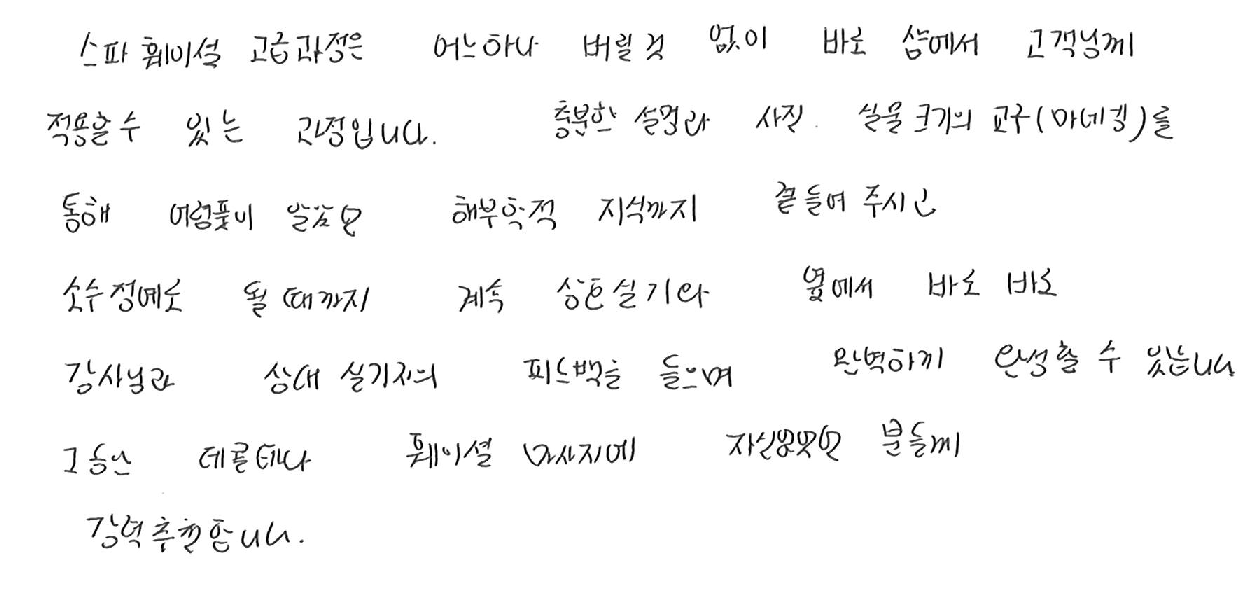 스파 훼이셜 고급과정은 어느하나 버릴것 없이 바로 샵에서 고객님께
적용할수 있는 과정입니다. 충분한 설명과 사진. 실물크기의 교구(마네킹)를
통해 어렴풋이 알았던 해부학적 지식까지 곁들여 주시고
소수정예로 될때까지 계속 상호실기와 옆에서 바로 바로
강사님과 상대 실기자의 피드백을 들으며 완벽하게 완성할 수 있습니다
그동안 데콜테나 훼이셜 마사지에 자신없었던 분들께
강력추천합니다.